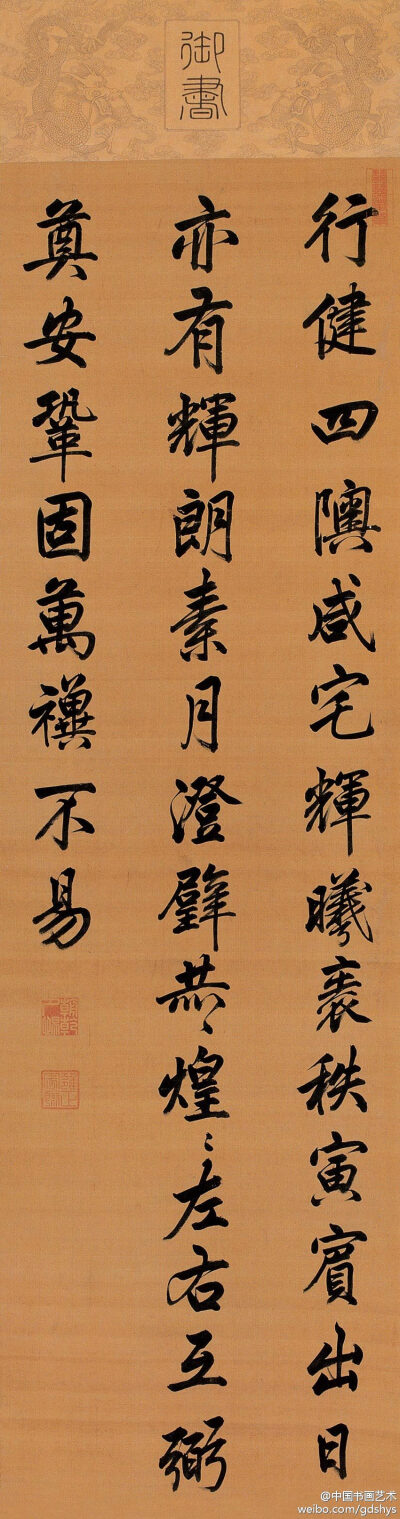 御書
行健四隩咸宅輝曦袠秩寅賓出日
亦有輝朗素月澄璧〻煌〻左右互弼
奠安鞏固萬禩不易
朝乾夕惕
雍正宸翰
@中国书画艺术
weibo.com/gdshys